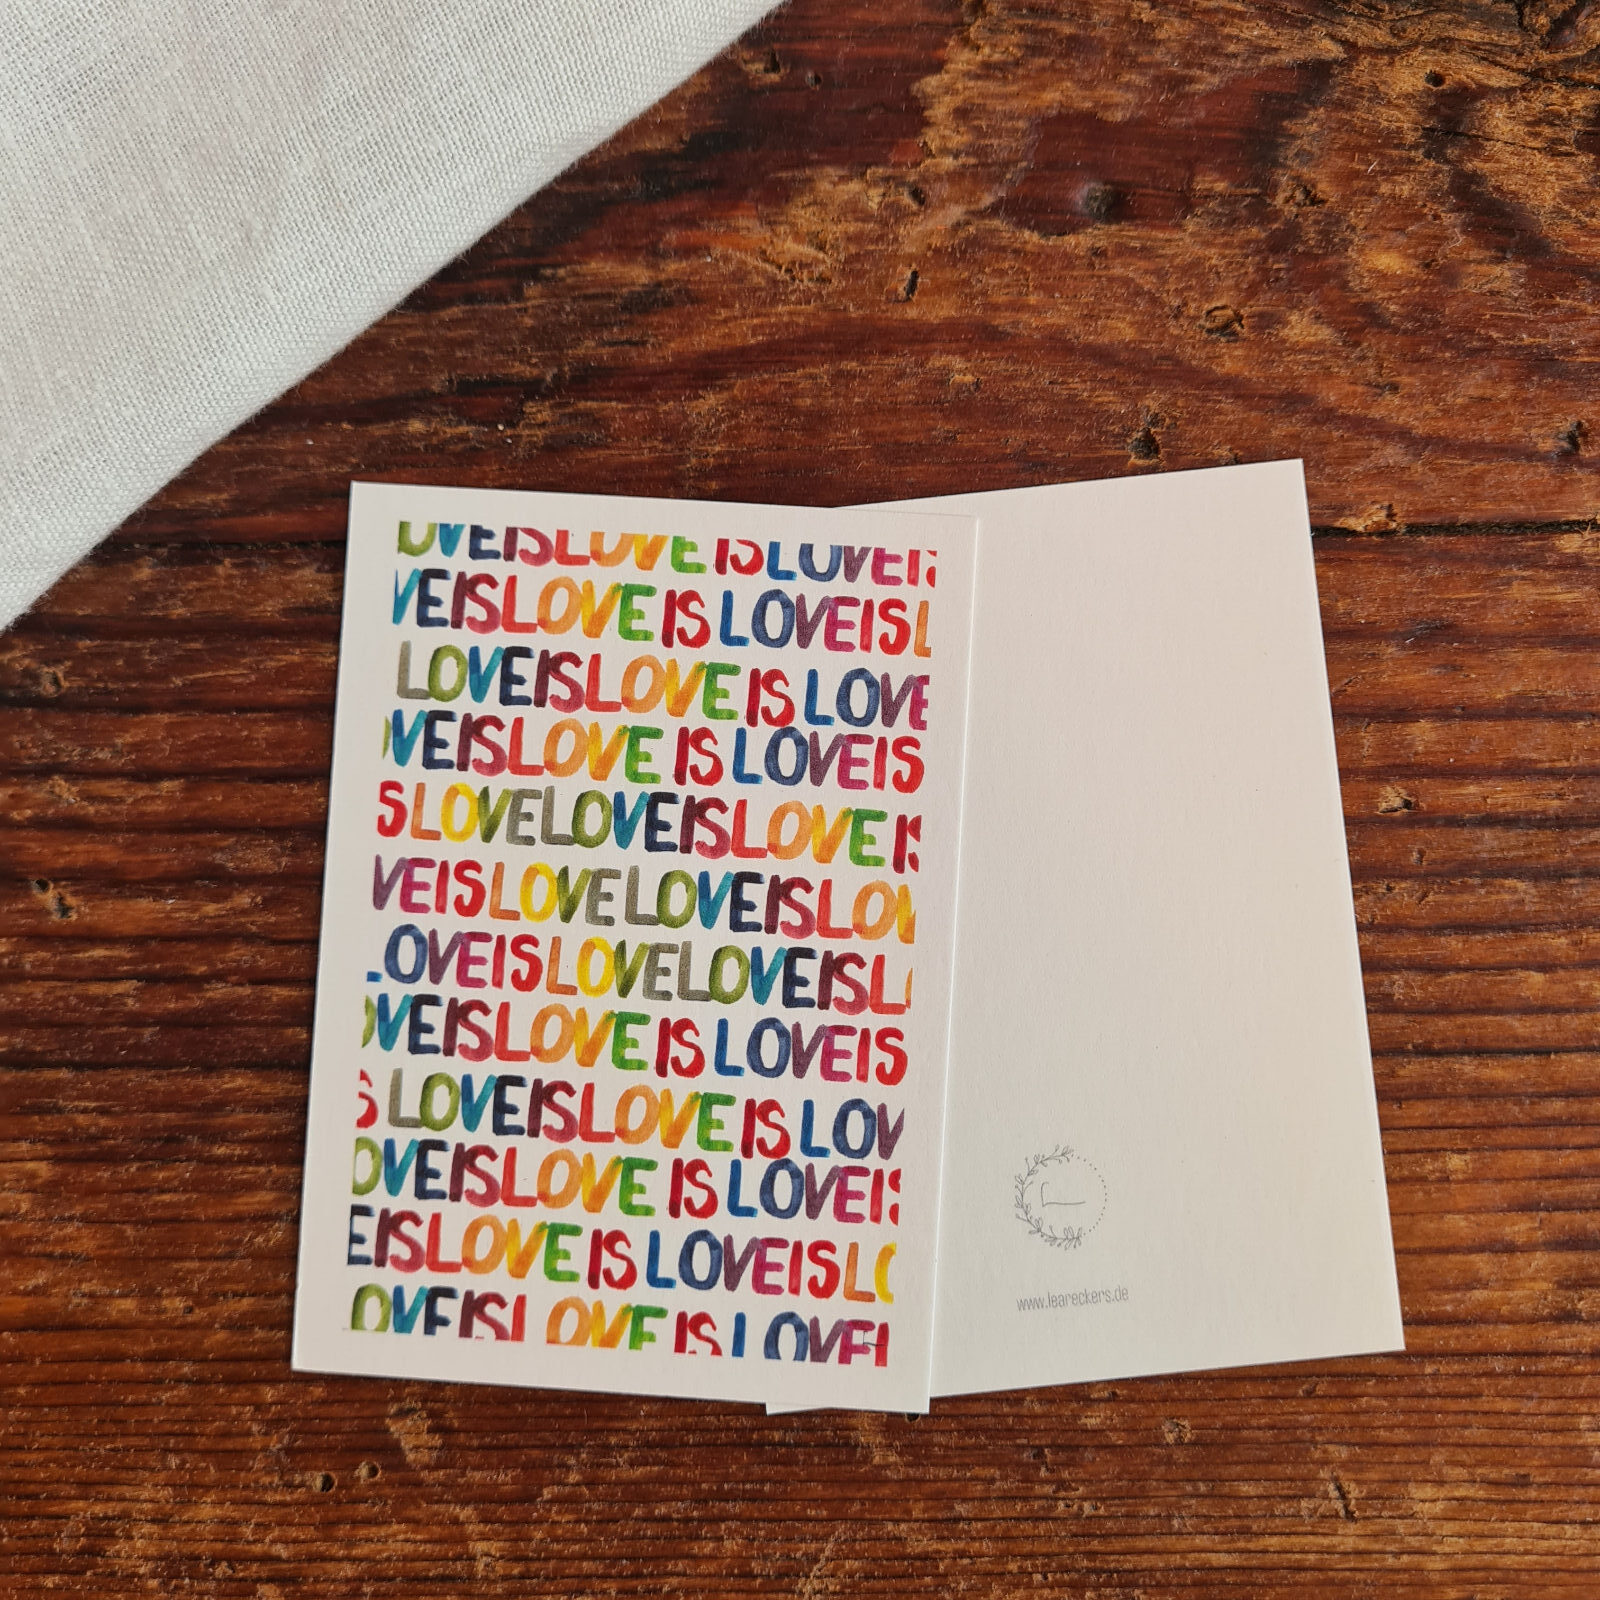 OVEISLOVE IS LOVEIS
VEISLOVE IS LOVEISL
LOVEISLOVE IS LOVE
OVEISLOVE IS LOVEIS
SLOVELOVEISLOVE IS
VEISLOVELOVEISLOV
LOVEISLOVELOVEISL
OVEISLOVE IS LOVEIS
S LOVEISLOVE IS LOV
OVEISLOVE IS LOVEIS
EISLOVE IS LOVEISLO
OVEISLOVE IS LOVEI
L
www.leareckers.de